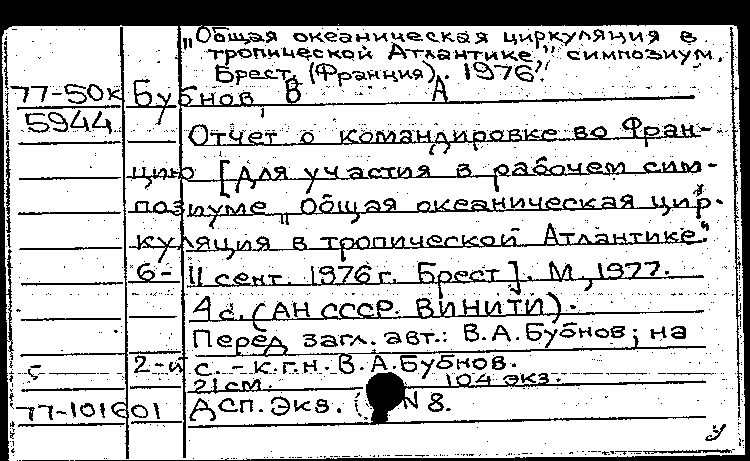 „Общая океаническая циркуляция в
тропической Атлантике," симпозиум.
Брест, (Франция). 1976."
77-50к Бубнов, В А
5944
Отчет о командировке во Фран-
цию [для участия в рабочем сим-
позиуме „Общая океаническая цир-
куляция в тропической Атлантике"
6- 11 сент. 1976 г. Брест]. М., 1977.
4 с. (АН СССР. ВИНИТИ).
Перед загл. авт.: В.А.Бубнов; на
с 2-й с. - к.г.н. В.А.Бубнов.
21см. 104 экз.
77-101601 Дсп. Экз. ( N 8.
у